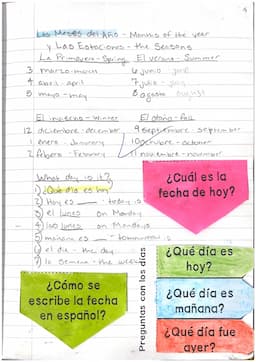 Los Meses del Año - Months of the year
y Las Estaciones - the Seasons
La Primavera - Spring El verano - Summer
3 marzo - march 6 junio - june
4 abril - april 7 julio - july
5 mayo - may 8 agosto - august
El invierno - Winter El otoño - Fall
12 diciembre - december 9 septiembre - september
1 enero - January 10 octubre - octuber
2 febrero - Febuary 11 noviembre - november
What day is it?
1) ¿Qué día es hoy
2) Hoy es ___ - today is
3) el lunes on Monday
4) los lunes on Mondays
5) mañana es ___ - tomorrow is
6) el día - the day
7) la semana - the week
¿Cuál es la
fecha de hoy?
¿Cómo se
escribe la fecha
en español?
Preguntas con los días
¿Qué día es
hoy?
¿Qué día es
mañana?
¿Qué día fue
ayer?